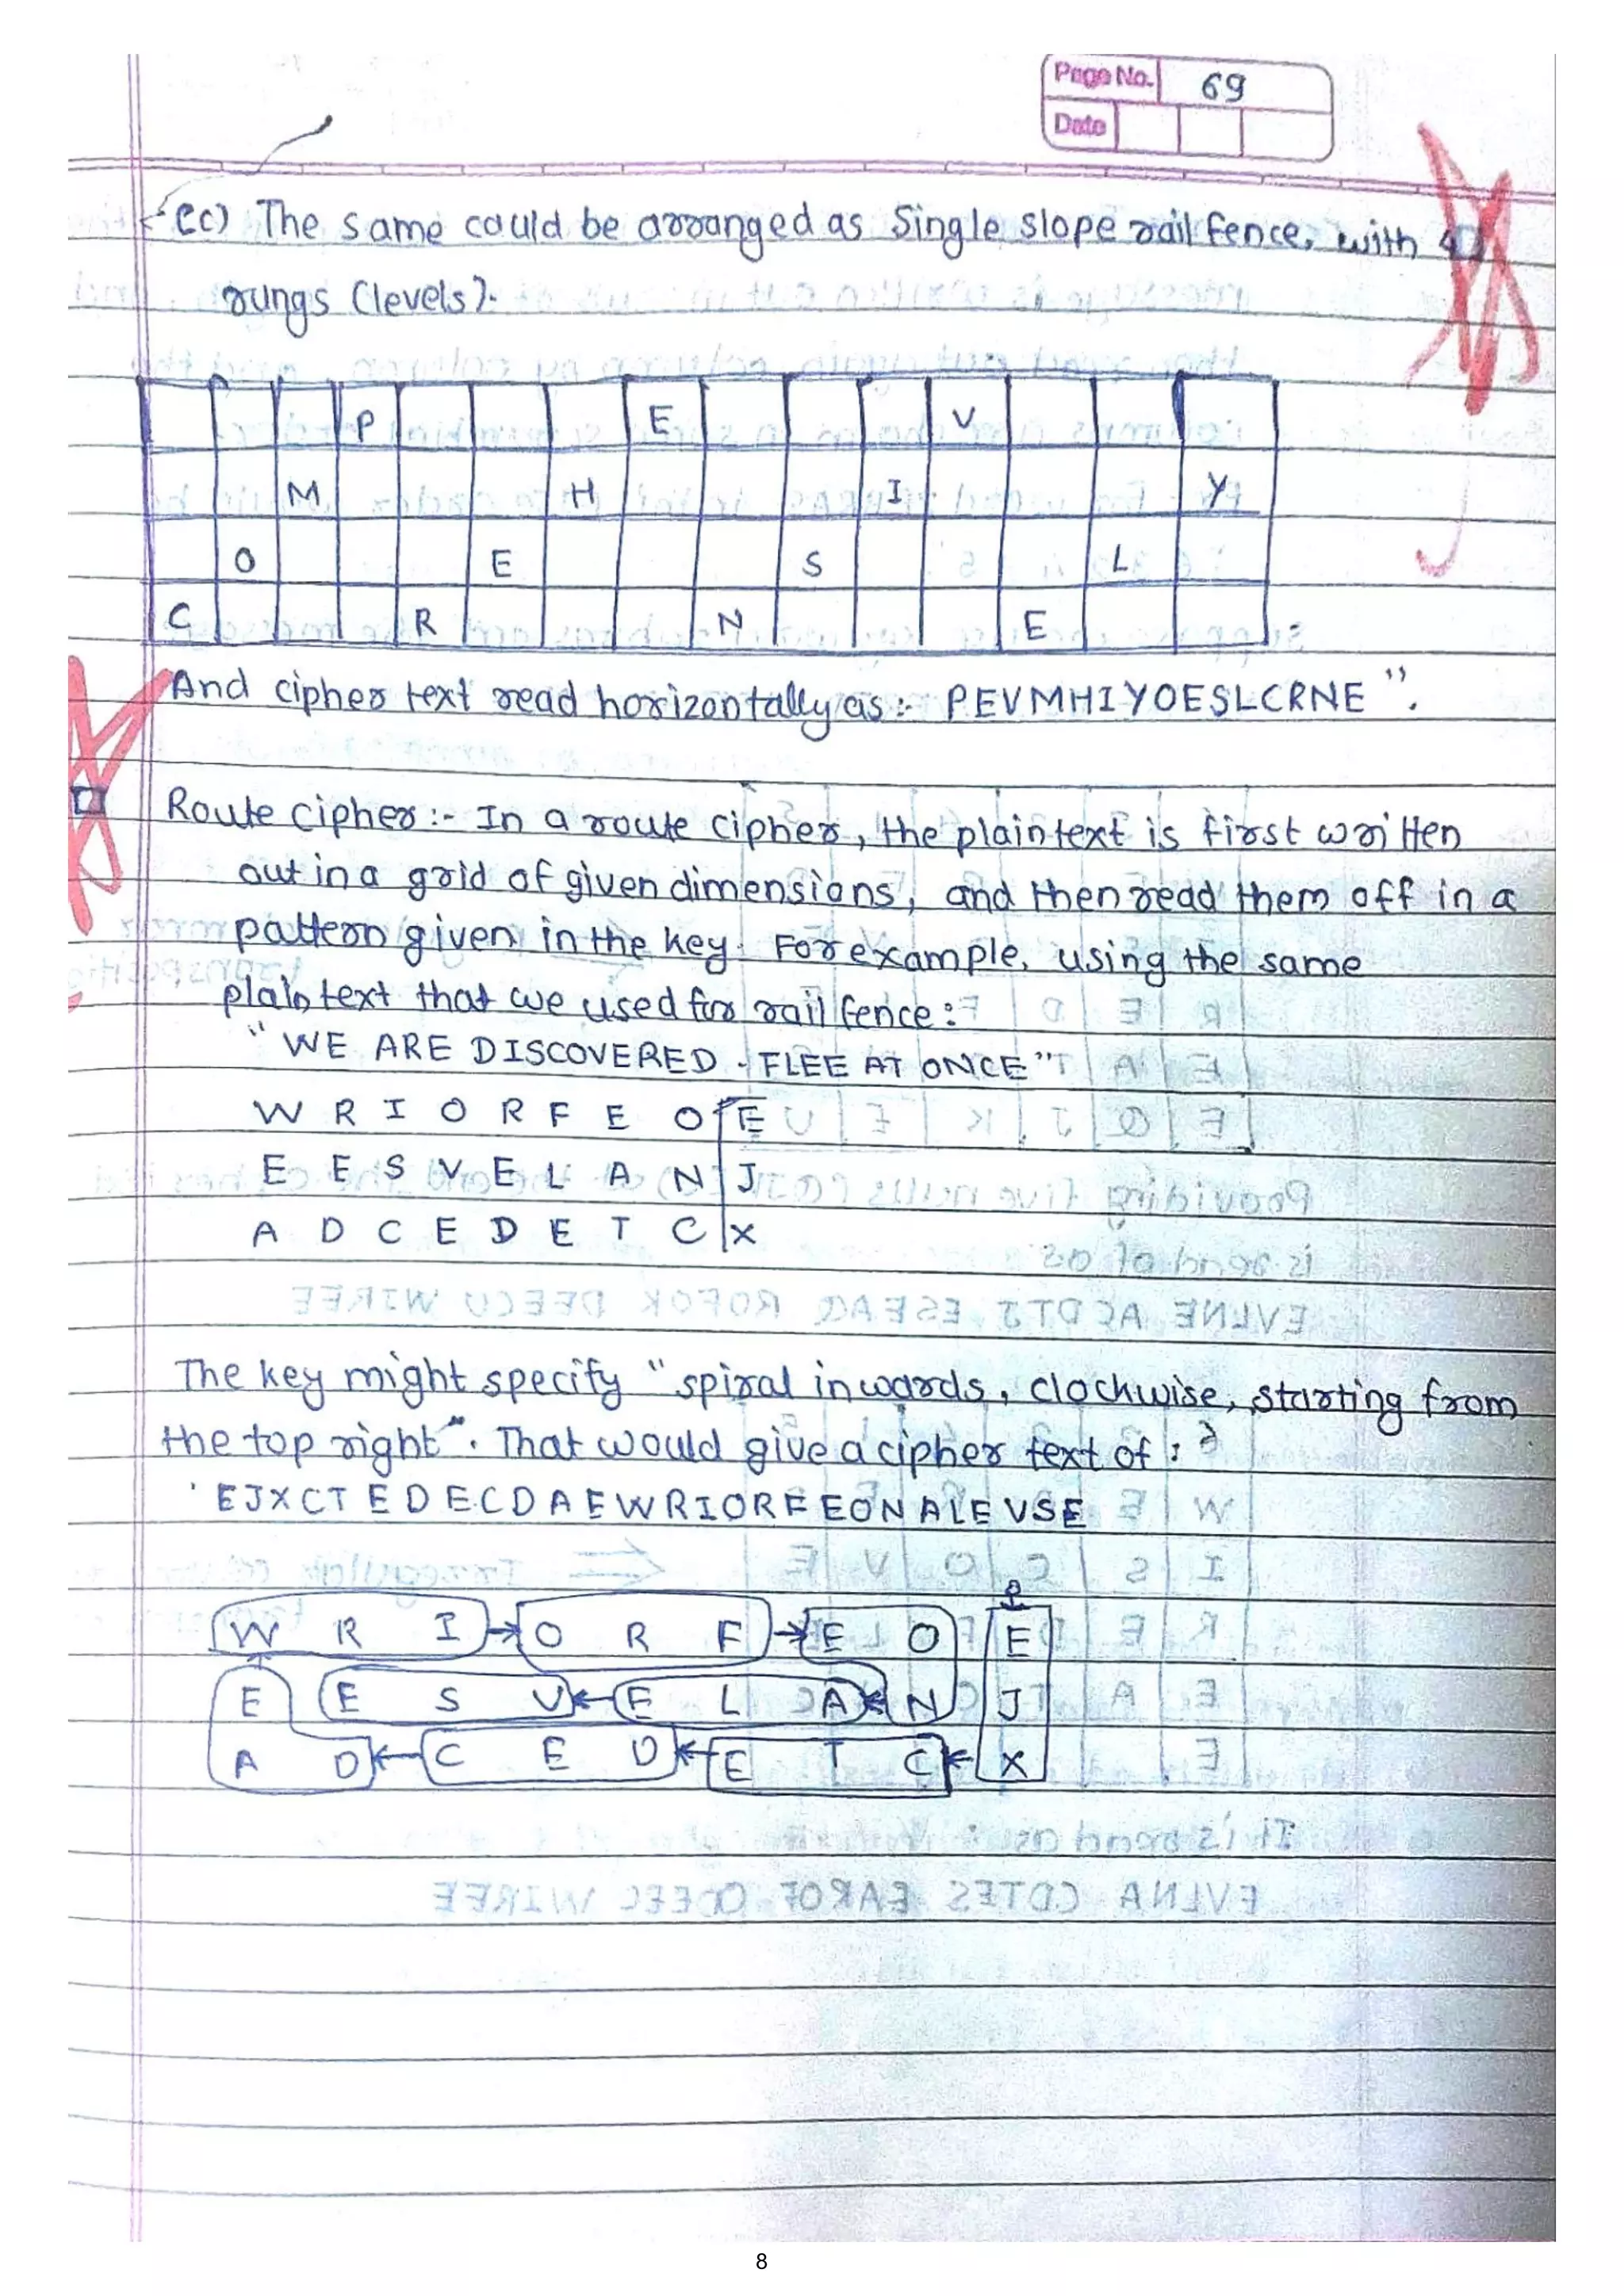 Page No. 69
Date
(c) The same could be arranged as Single slope rail fence, with 4
rungs (levels).
P E V
M H I Y
O E S L
C R N E
And cipher text read horizontally as:- PEVMHIYOESLCRNE".
Route cipher :- In a route cipher, the plaintext is first written
out in a grid of given dimensions, and then read them off in a
pattern given in the key. For example, using the same
plain text that we used for rail fence :
"WE ARE DISCOVERED. FLEE AT ONCE"
W R I O R F E O E
E E S V E L A N J
A D C E D E T C X
The key might specify "spiral inwards, clockwise, starting from
the top right". That would give a cipher text of :
'EJXCTEDECDAEWRIORFEONALEVSE
W R I O R F E O E
E E S V E L A N J
A D C E D E T C X
8